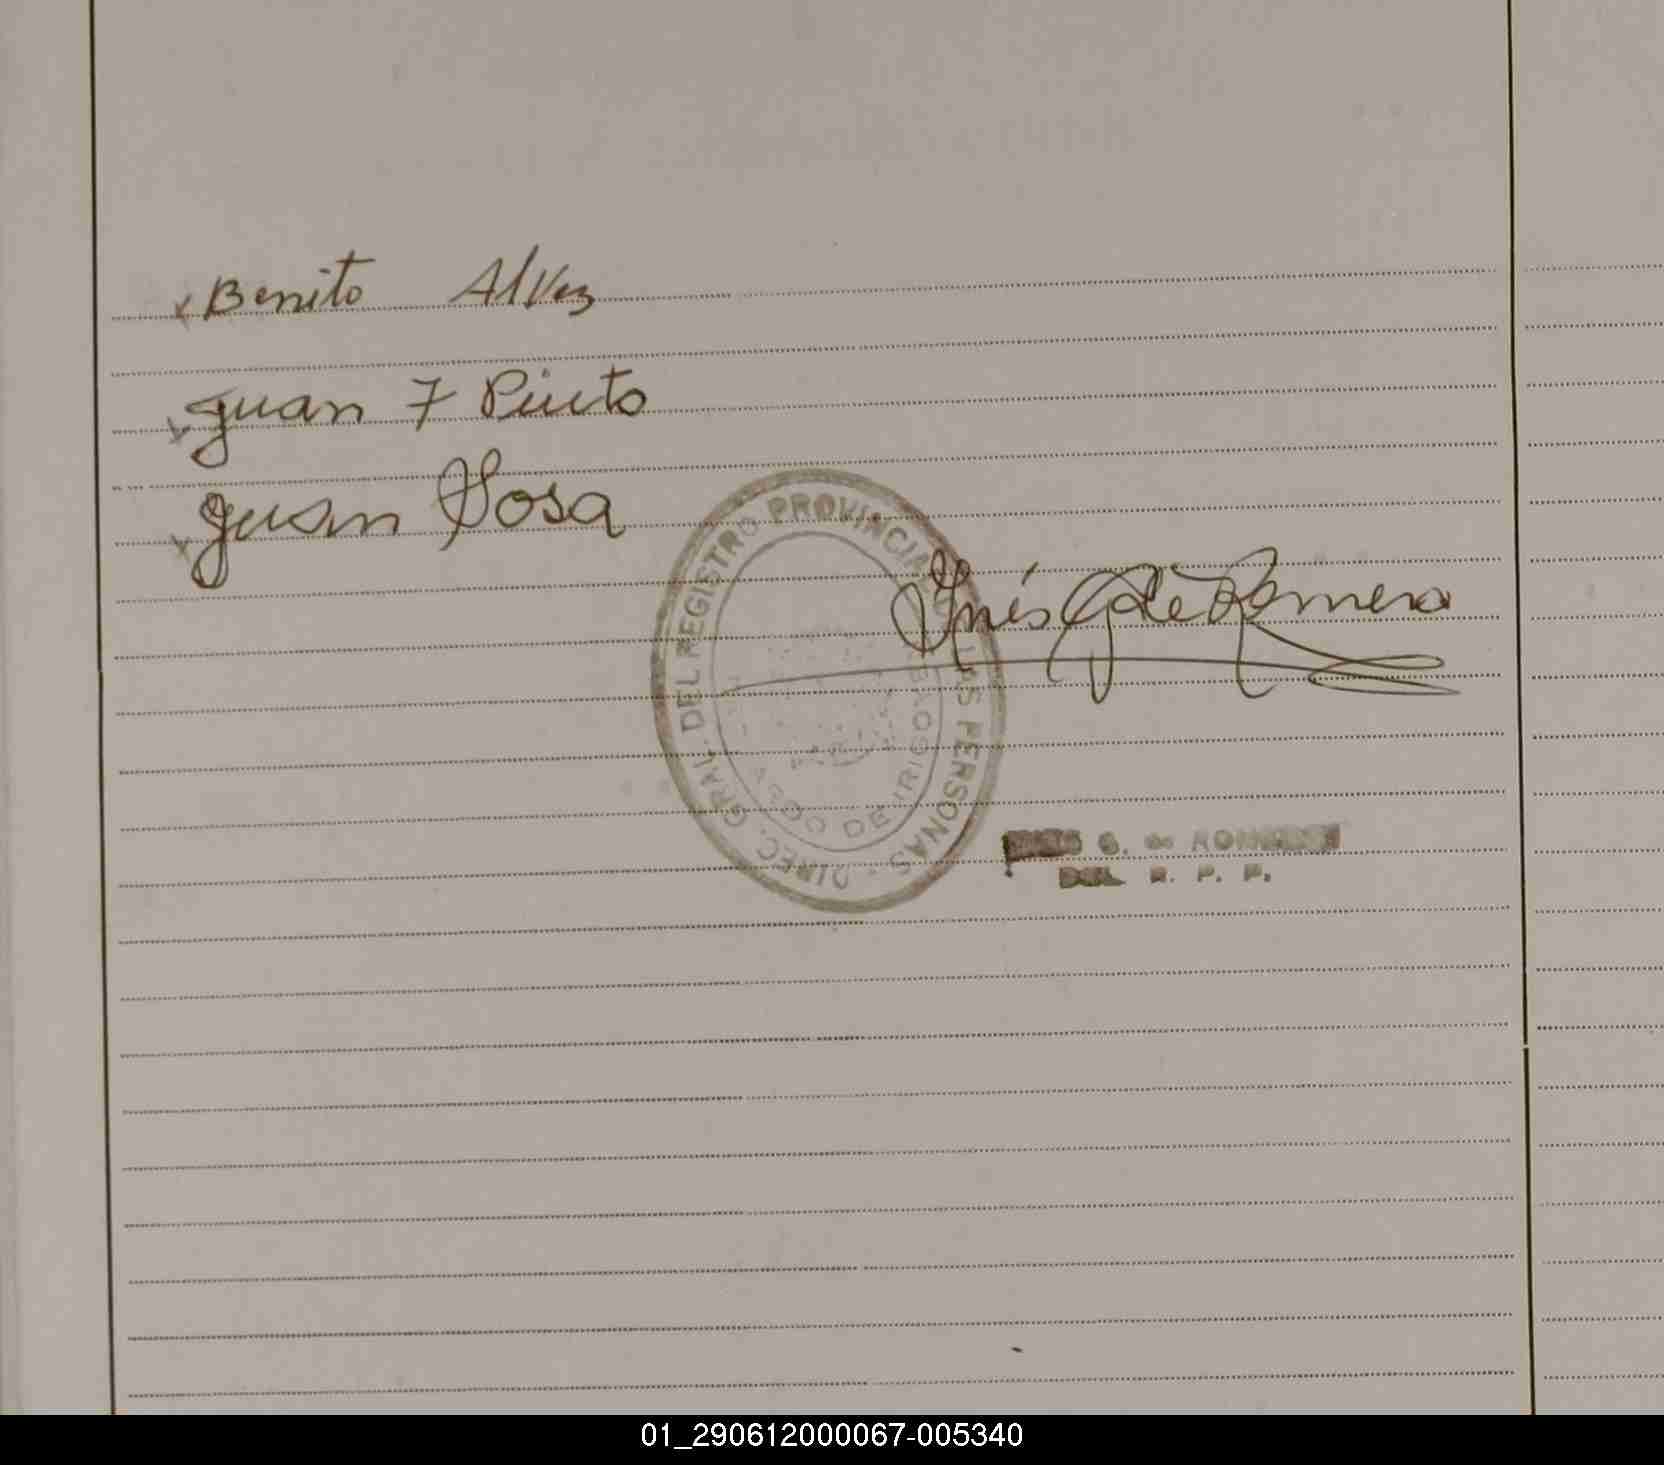 Benito Alvez
Juan F Pinto
Juan Sosa
Inés G de Romero
DIREC. GRAL. DEL REGISTRO PROVINCIAL DE LAS PERSONAS
DE IRIGOYEN
G. de ROMERO
DEL R. P. P.
01_290612000067-005340